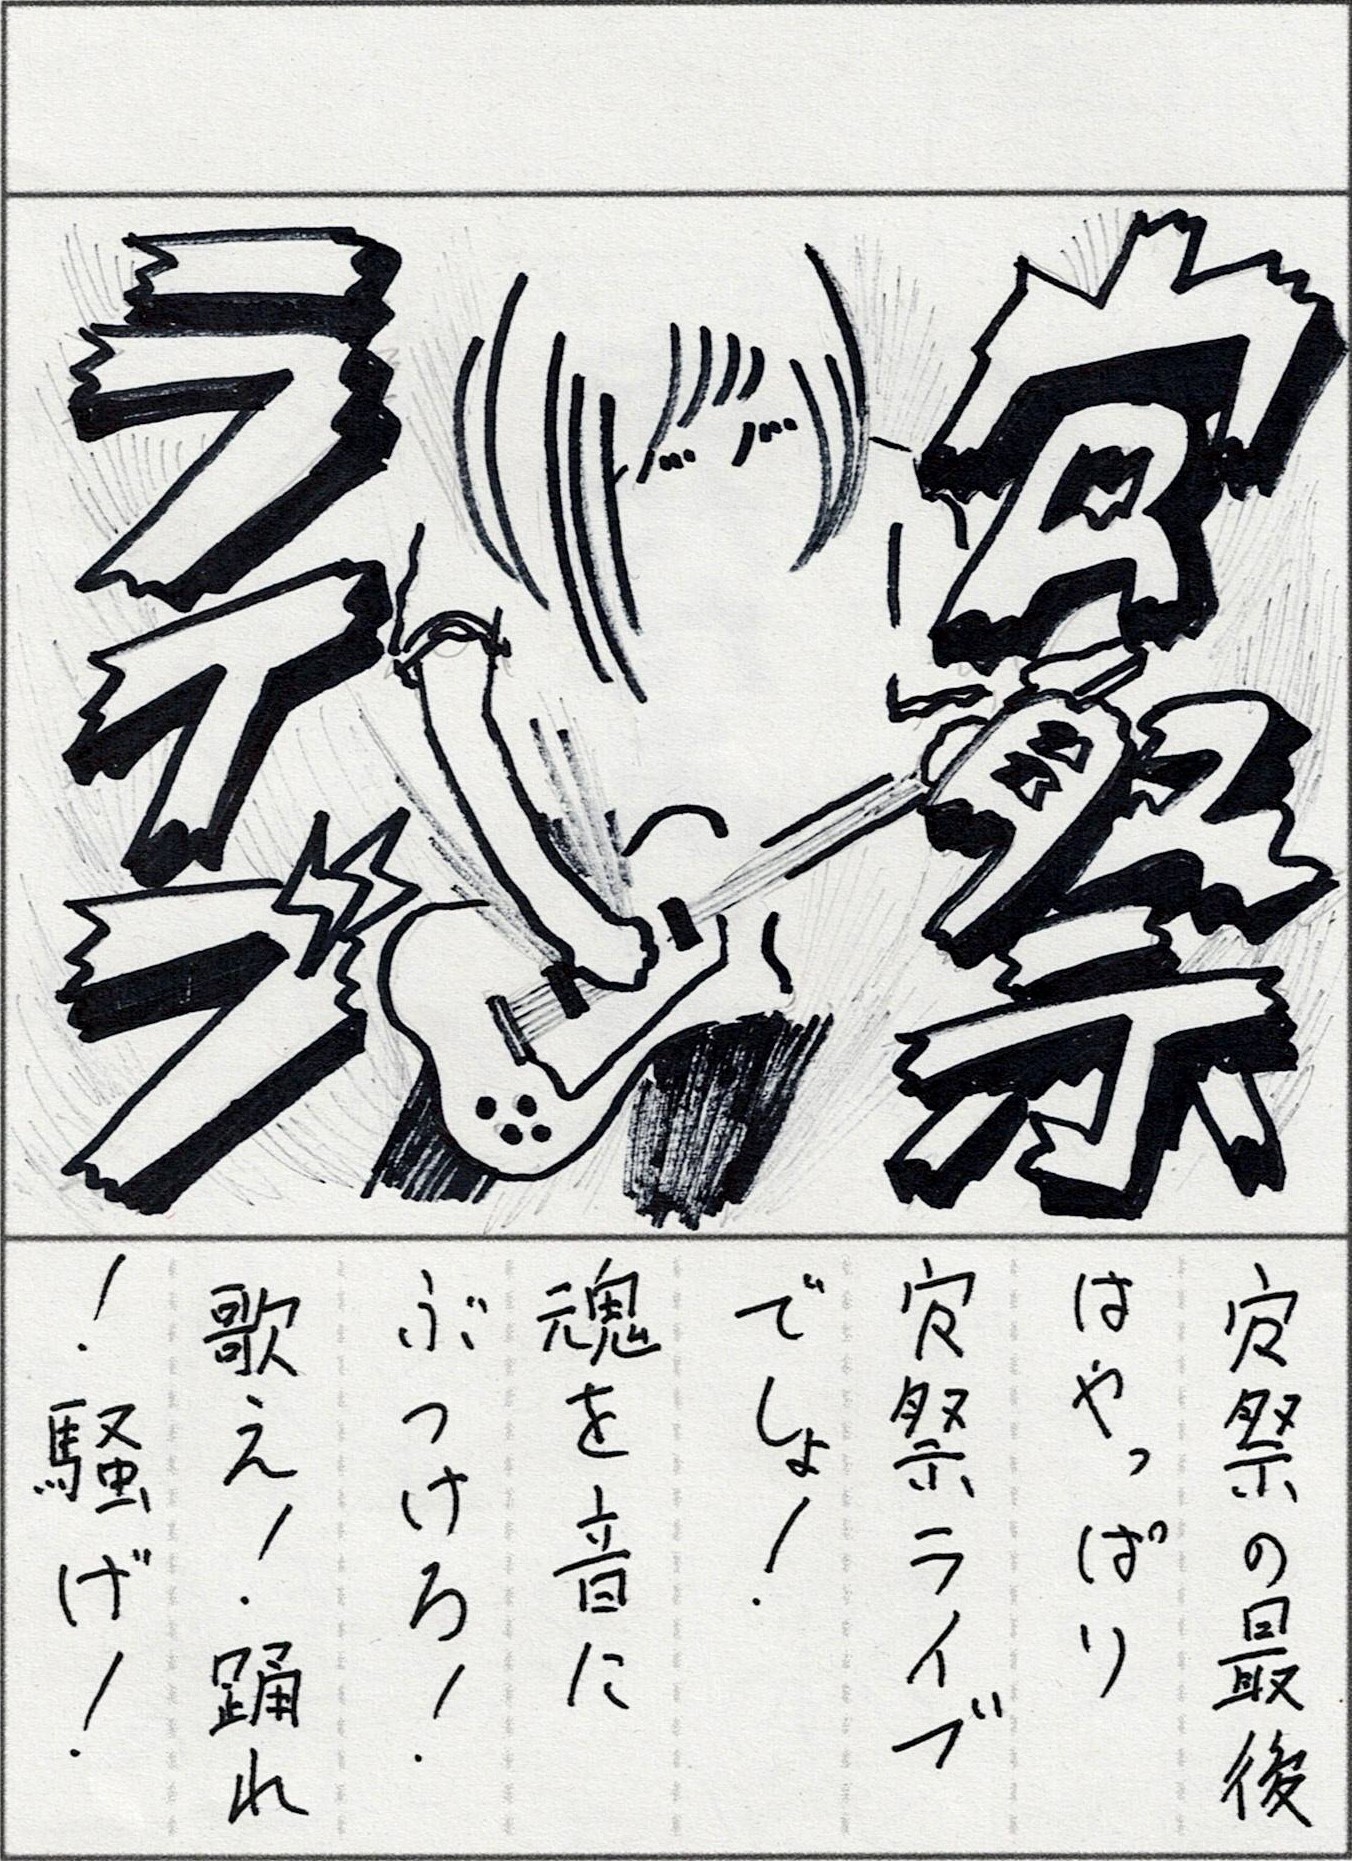 寮祭
ライブ
寮祭の最後
はやっぱり
寮祭ライブ
でしょ！
魂を音に
ぶつけろ！
歌え！踊れ
！騒げ！